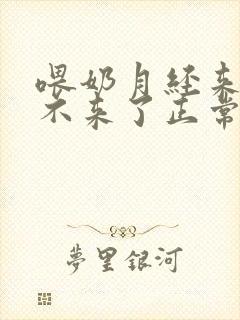 喂奶月经来
不来了正常
夢里銀河